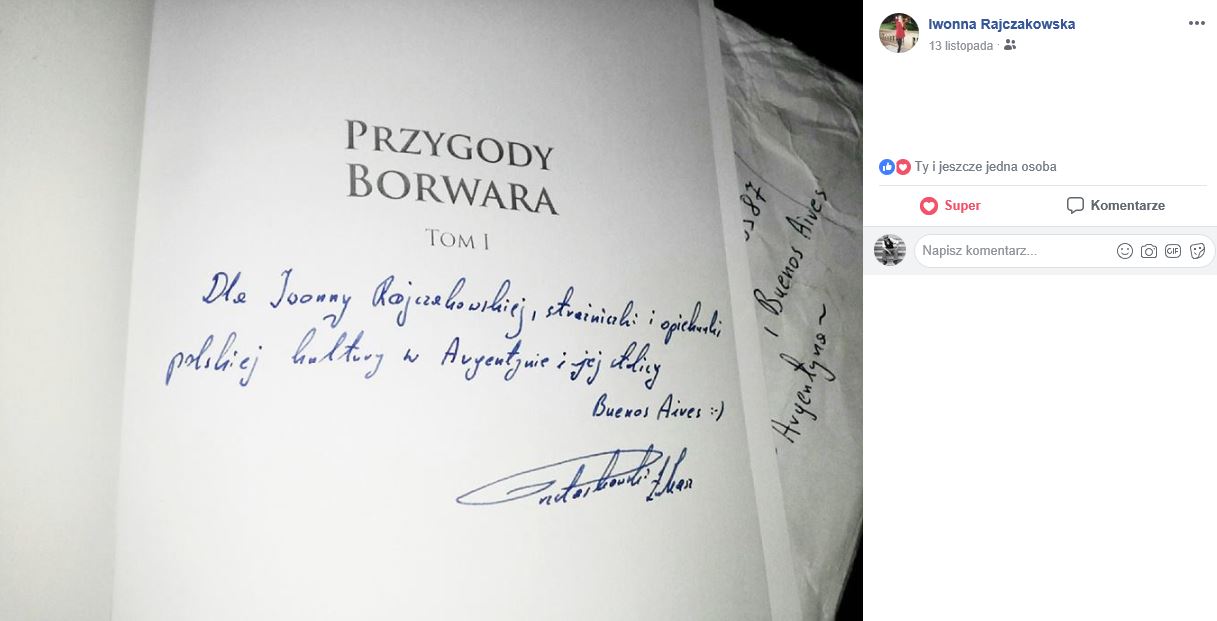 PRZYGODY
BORWARA
TOM I
Dla Iwonny Rajczakowskiej, strażniczki i opiekunki
polskiej kultury w Argentynie i jej stolicy
Buenos Aires :-)
Łukasz
1 Buenos Aires
Argentyna ~
Iwonna Rajczakowska
13 listopada
Ty i jeszcze jedna osoba
Super
Komentarze
Napisz komentarz...
GIF